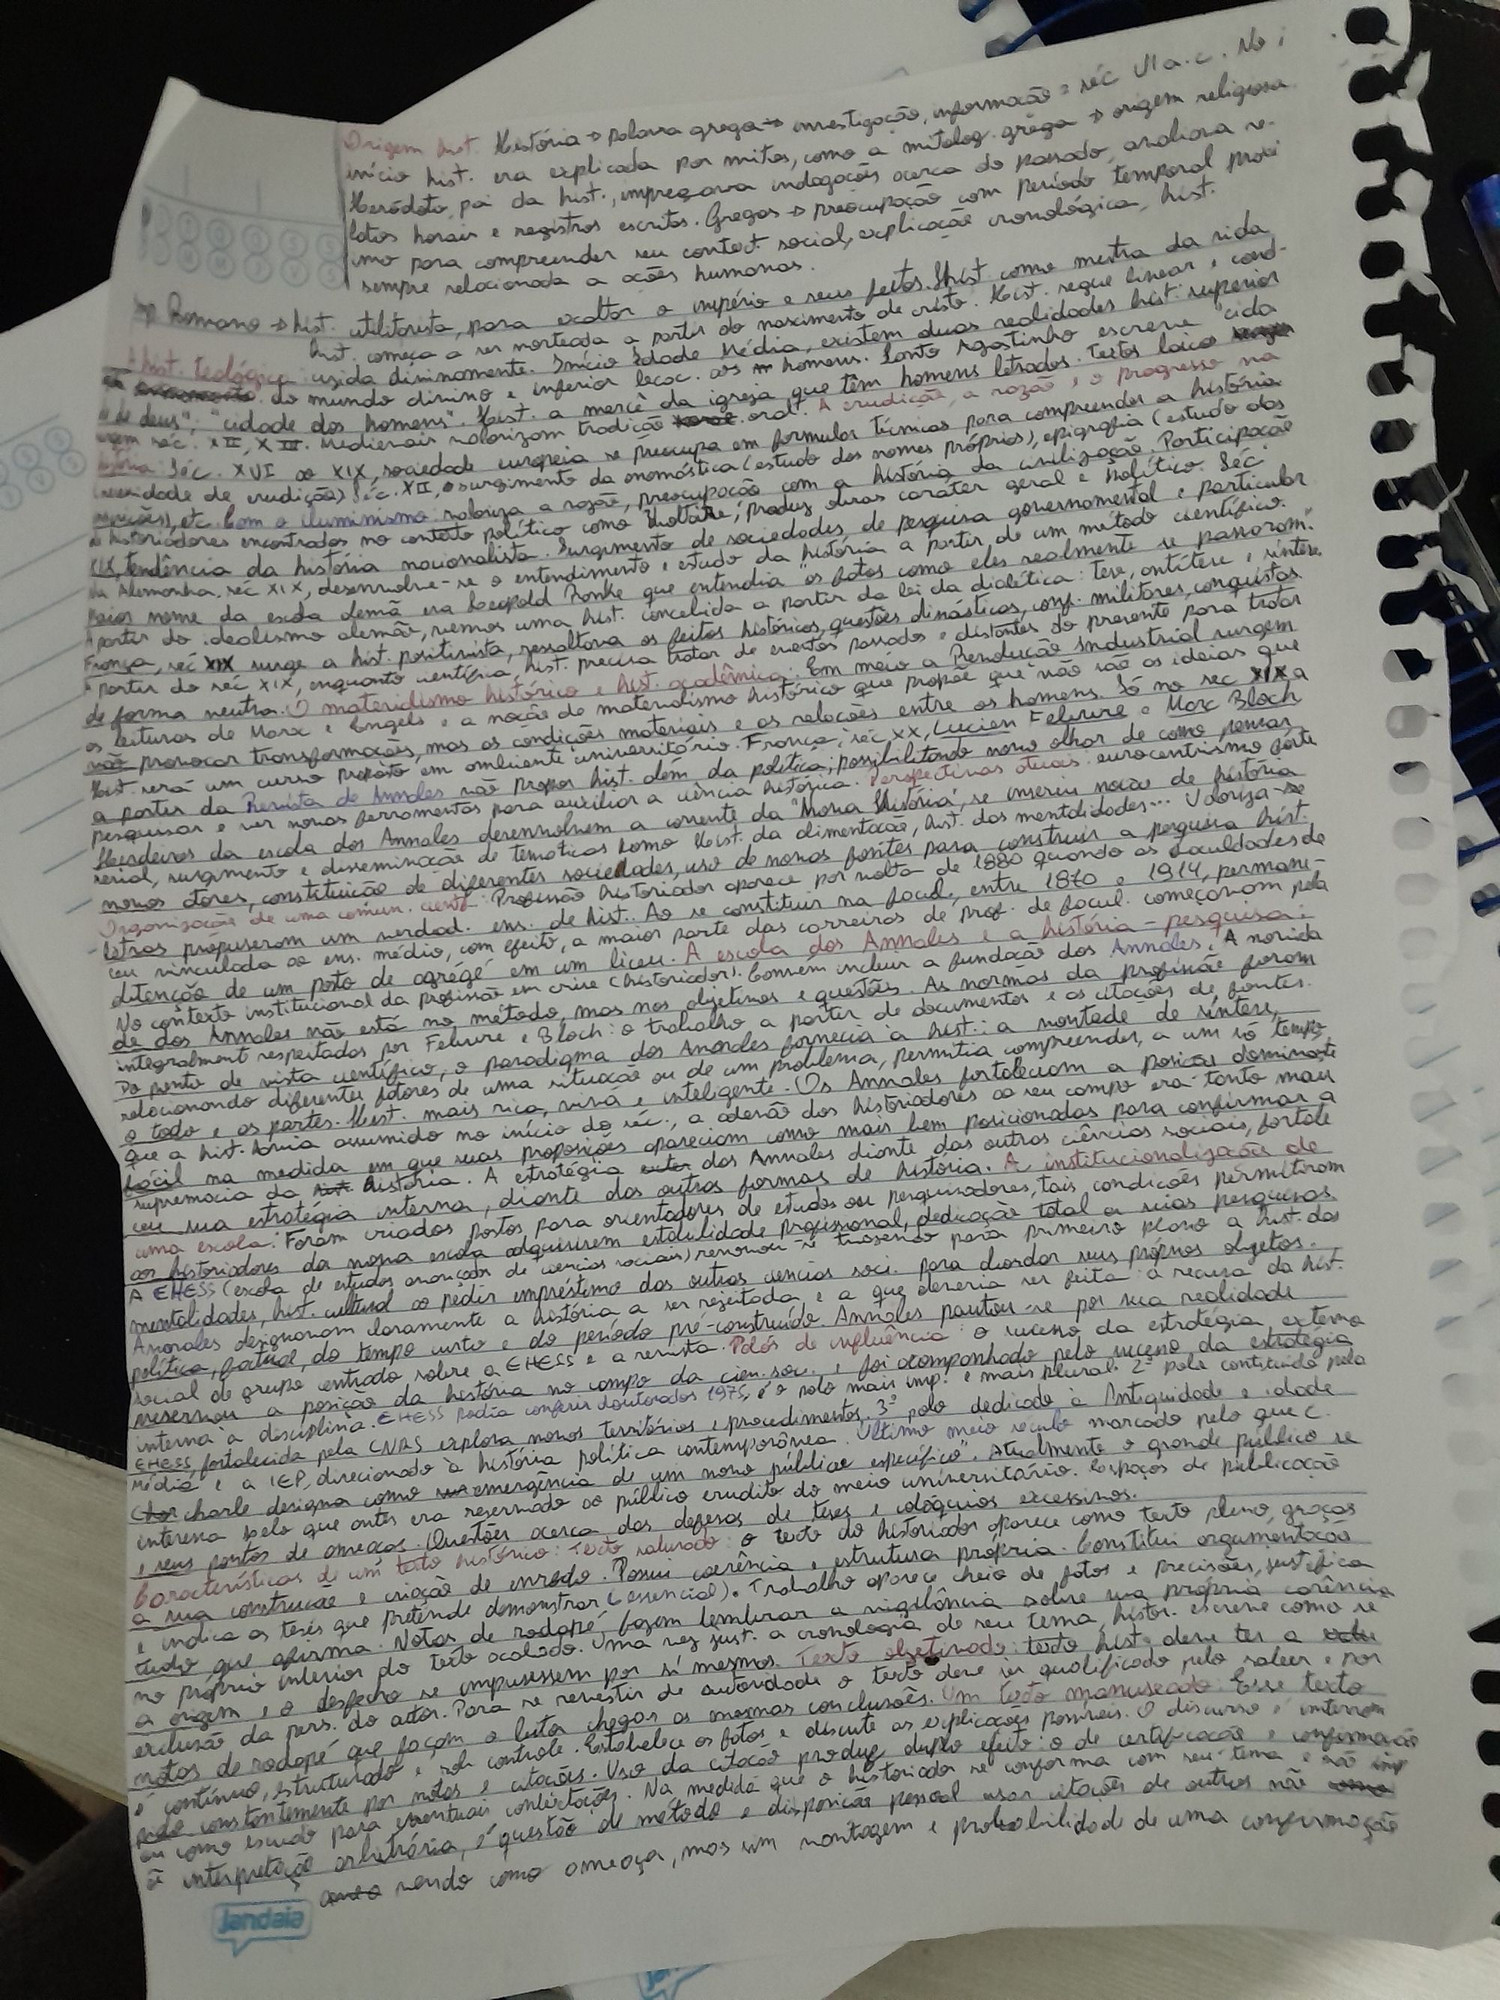 Origem hist. História → palavra grega → investigação, informação = séc VI a.c. No i
início hist. era explicada por mitos, como a mitolog. grega → origem religiosa
Heródoto, pai da hist., impregava indagações acerca do passado, analisava re-
latos horais e registros escritos. Gregos → preocupação com período temporal proxi
imo para compreender seu context social, explicação cronológica, hist.
sempre relacionada a ações humanas.
Romano → hist. utilitarista, para exaltar o império e seus feitos. Hist como mestra da vida
A hist. teológica: hist. começa a ser norteada a partir do nascimento de cristo. Hist. segue linear e cond-
uzida divinamente. Início Idade Média, existem duas realidades hist. superior
do mundo divino e inferior aos homens. Santo Agostinho escreve "cida
de de deus"; "cidade dos homens". Hist. a mercê da igreja que têm homens letrados. Textos laico
séc. XII, XIII. Medievais valorizam tradição oral. A erudição, a razão e o progresso na
história: Séc. XVI ao XIX, sociedade europeia se preocupa em formular técnicas para compreender a história
(necessidade de erudição) Séc. XII, surgimento da onomástica (estudo dos nomes próprios), epigrafia (estudo das
inscrições), etc. Com o iluminismo valoriza a razão, preocupação com a história da civilização. Participação
historiadores encontrados no contexto político como Voltaire, produz obras caráter geral e político. Séc.
XIX, tendência da história nacionalista. Surgimento de sociedades de pesquisa governamental e particular
Na Alemanha, séc XIX, desenvolve-se o entendimento e estudo da história a partir de um método científico.
Maior nome da escola alemã era Leopold Ranke que entendia "os fatos como eles realmente se passaram".
A partir do idealismo alemão, vemos uma hist. concebida a partir da lei da dialética: tese, antítese e síntese.
França, séc XIX surge a hist. positivista, ressaltava os feitos históricos, questões dinásticas, conf. militares, conquistas
A partir do séc XIX, enquanto científica, hist. precisa tratar de eventos passados e distantes do presente, para tratar
de forma neutra. O materialismo histórico e hist. acadêmica: Em meio a Revolução Industrial surgem
as leituras de Marx e Engels e a noção de materialismo histórico que propõe que não são as ideias que
vão provocar transformações, mas as condições materiais e as relações entre os homens. Só no sec XIX a
Hist. será um curso proposto em ambiente universitário. França, séc XX, Lucien Febvre e Marc Bloch
a partir da Revista de Annales vão propor hist. além da política, possibilitando novo olhar de como pensar
pesquisar e ver novas ferramentas para auxiliar a ciência histórica. Perspectivas atuais: eurocentrismo forte
Herdeiros da escola dos Annales desenvolvem a corrente da "Nova História", se inseriu noção de história
serial, surgimento e disseminação de temáticas como Hist. da alimentação, hist. das mentalidades... Valoriza-se
novos atores, constituição de diferentes sociedades, uso de novas fontes para construir a pesquisa hist.
Organização de uma comun. cientí. Profissão historiador aparece por volta de 1880 quando as faculdades de
letras propuseram um verdad. ens. de hist.. Ao se constituir na facul., entre 1870 e 1914, permane-
ceu vinculada ao ens. médio, com efeito, a maior parte das carreiras de prof. de facul. começavam pela
obtenção de um posto de agrégé em um liceu. A escola dos Annales e a história - pesquisa:
No contexto institucional da profissão em crise (historiador). Convém incluir a fundação dos Annales. A novida
de dos Annales não está no método, mas nos objetivos e questões. As normas da profissão foram
integralmente respeitadas por Febvre e Bloch: o trabalho a partir de documentos e as citações de fontes.
Do ponto de vista científico, o paradigma dos Annales fornecia à hist.: a vontade de síntese,
relacionando diferentes fatores de uma situação ou de um problema, permitia compreender, a um só tempo
o todo e as partes. Hist. mais rica, viva e inteligente. Os Annales fortaleciam a posição dominante
que a hist. havia assumido no início do séc., a adesão dos historiadores ao seu campo era tanto mais
fácil na medida em que suas proposições apareciam como mais bem posicionadas para confirmar a
supremacia da história. A estratégia dos Annales diante das outras ciências sociais, fortale
ceu sua estratégia interna, diante das outras formas de história. A institucionalização de
uma escola: Foram criados postos para orientadores de estudos ou pesquisadores, tais condições permitiram
aos historiadores da nova escola adquirirem estabilidade profissional, dedicação total a suas pesquisas
A EHESS (escola de estudos avançados de ciencias sociais) renovou-se trazendo para primeiro plano a hist. das
mentalidades, hist. cultural ao pedir empréstimo das outras ciencias soci. para abordar seus próprios objetos.
Annales designavam claramente a história a ser rejeitada e a que deveria ser feita à recusa da hist.
política, factual, do tempo curto e do período pré-construído Annales pautou-se por sua realidade
social de grupo entrado sobre a EHESS e a revista. Polos de influência: o sucesso da estratégia externa
preservou a posição da história no campo da cien. soc. e foi acompanhado pelo sucesso da estratégia
interna à disciplina. EHESS podia conferir doutorados 1975, é o polo mais imp. e mais plural. 2º polo contituido pela
EHESS, fortalecida pela CNRS explora novos territórios e procedimentos. 3º polo dedicado à Antiguidade e idade
média e a IEP, direcionado à história política contemporânea. Ultimo meio século marcado pelo que C.
charle designa como emergência de um novo público específico". Atualmente o grande público se
interessa pelo que antes era reservado ao público erudito do meio universitário. Espaços de publicação
e seus pontos de ameaças. Questões acerca das defesas de teses e colóquios excessivos.
Características de um texto histórico: Texto saturado: o texto do historiador aparece como texto pleno, graças
a sua construção e criação de enredo. Possui coerência e estrutura própria. Constitui argumentação
e indica as tesés que pretende demonstrar (essencial). Trabalho aparece cheio de fatos e precisões, justifica
tudo que afirma. Notas de rodapé, fazem lembrar a vigilância sobre sua própria carência
no próprio interior do texto acabado. Uma vez just. a cronologia de seu tema, histor. escreve como se
a origem e o desfecho se impusessem por si mesmos. Texto objetivado: texto hist. deve ter a
exclusão da pers. do autor. Para se revestir de autoridade o texto deve ser qualificado pelo saber e por
notas de rodapé que façam o leitor chegar as mesmas conclusões. Um texto manuseado: Esse texto
é contínuo, estruturado e sob controle. Estabelece os fatos e discute as explicações possíveis. O discurso é interrom
pido constantemente por notas e citações. Uso da citação produz duplo efeito: o de certificação e confirmação
ou como escudo para eventuais contestações. Na medida que o historiador se conforma com seu tema e não imp
à interpretação arbitrária, é questão de método e disposição pessoal usar citações de outros não
sendo como ameaça, mas um vantagem e probabilidade de uma confirmação
Jandaia